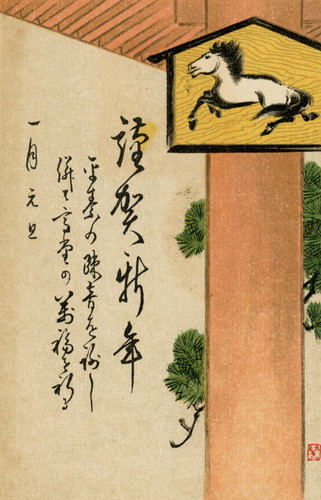 謹賀新年
平素の疎音を謝し
併て高堂の萬福を祈る
一月元旦